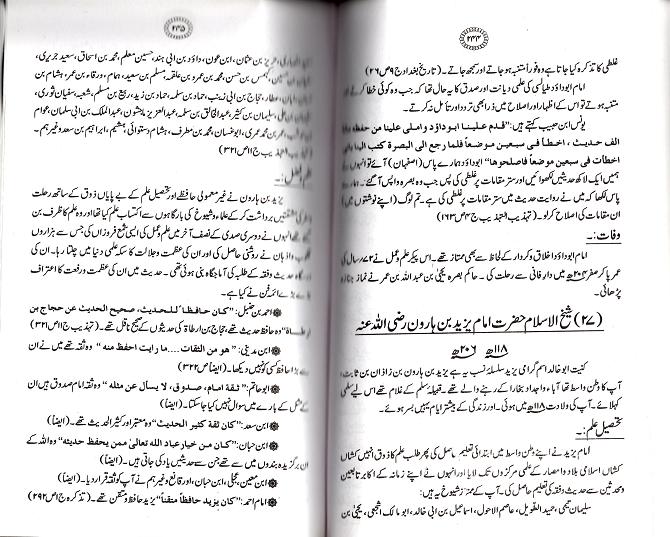 ۲۳۴
غلطی کا تذکرہ کیا جاتا ہے وہ فوراً متنبہ ہو جاتے اور سمجھ جاتے۔ (تاریخ بغداد ج۹ ص۲۶)
امام ابوداؤد طیالسی کی علمی دیانت اور صدق کا یہ حال تھا کہ جب وہ کوئی خطا کرتے اور
متنبہ ہوتے تو اس کے اظہار اور اصلاح میں ذرا بھی تردد و تأمل نہ کرتے۔
یونس ابن حبیب کہتے ہیں: "قدم علینا ابوداؤد و املی علینا من حفظه مائة
الف حدیث، اخطأ فی سبعین موضعاً فلما رجع الی البصرة کتب الینا انی
اخطأت فی سبعین موضعاً فاصلحوها" ابوداؤد ہمارے پاس (اصفہان) آئے تو انہوں نے
ہمیں ایک لاکھ حدیثیں لکھوائیں اور ستر مقامات پر غلطی کی پس جب وہ بصرہ واپس آگئے۔ ہمارے
پاس لکھا کہ میں نے روایت حدیث میں ستر مقامات پر غلطی کی ہے۔ تم لوگ (اپنے نوشتوں میں)
ان مقامات کی اصلاح کرلو۔ (تہذیب التہذیب ج۴ ص۱۶۳)
وفات:۔
امام ابوداؤد اخلاق و کردار کے لحاظ سے بھی ممتاز تھے۔ اس پیکر علم و عمل نے ۷۲ سال کی
عمر پاکر صفر ۲۰۴ھ میں دار فانی سے رحلت کی۔ حاکم بصرہ یحییٰ بن عبداللہ بن عمر نے نماز جنازہ
پڑھائی۔
(۲۷) شیخ الاسلام حضرت امام یزید بن ہارون رضی اللہ عنہ
۱۱۸ھ ۲۰۶ھ
کنیت ابو خالد اسم گرامی یزید سلسلۂ نسب یہ ہے یزید بن ہارون بن زاذان بن ثابت
آپ کا وطن واسط تھا آباء و اجداد بخارا کے رہنے والے تھے۔ قبیلہ سلم کے غلام تھے اس لیے سلمی
کہلائے۔ آپ کی ولادت ۱۱۸ھ میں ہوئی۔ اور زندگی کے بیشتر ایام یہیں بسر ہوئے۔
تحصیل علم:۔
امام یزید نے اپنے وطن واسط میں ابتدائی تعلیم حاصل کی پھر طلب علم کا ذوق انہیں کشاں
کشاں اسلامی بلاد و امصار کے علمی مرکزوں تک لایا اور انہوں نے اپنے زمانہ کے اکابر تابعین
و محدثین سے حدیث و فقہ کی تعلیم حاصل کی۔ آپ کے ممتاز شیوخ یہ ہیں:
سلیمان تیمی، حمید الطویل، عاصم الاحول، اسماعیل بن ابی خالد، ابو مالک اشجعی، یحییٰ بن
۲۳۵
حریز بن عثمان، ابن عون، داؤد بن ابی ہند، حسین معلم، محمد بن اسحاق، سعید جریری،
بن حسن، محمد بن عمرو بن علقمہ، مسلم بن سعید، ہمام، ورقاء بن عمر، ہشام بن
حجاج بن ابی زینب، حماد بن سلمہ، حماد بن زید، ربیع بن مسلم، شعبہ، سفیان ثوری،
سلیمان بن کثیر، عبدالخالق بن سلمہ، عبدالعزیز ماجشون، عبدالملک بن ابی سلیمان، عوام
محمد عمری، ابو غسان، محمد بن مطرف، ہشام دستوائی، ہشیم، ابراہیم بن سعد وغیرہم۔
التہذیب ج۱۱ ص۳۲۱)
یزید بن ہارون نے غیر معمولی حافظے اور تحصیل علم کے بے پایاں ذوق کے ساتھ رحلت
برداشت کرکے علماء و شیوخ کی بارگاہوں سے اکتساب علم کیا تھا اور وہ علم کا ظرف بن
نے دوسری صدی کے نصف آخر میں علم و عمل کی ایسی شمع فروزاں کی جس سے ہزاروں
نے روشنی حاصل کی اور ان کی عظمت و جلالت کا سکہ علمی دنیا میں چلتا رہا۔ ان کی
حدیث و فقہ کے طلبہ کی آماجگاہ بنی ہوئی تھی۔ حدیث میں ان کی عظمت و رفعت کا اعتراف
بڑے ائمہ فن نے کیا ہے۔
احمد بن حنبل: "کان حافظاً للحدیث، صحیح الحدیث عن حجاج بن
ارطاة" وہ حافظ حدیث تھے، حجاج بن ارطاۃ کی حدیثوں کے صحیح ناقل تھے۔ (تہذیب ج۱۱ ص۳۲۱)
ابن مدینی: "هو من الثقات.... ما رایت احفظ منه" وہ ثقہ تھے میں نے ان
حافظ کسی کو نہیں دیکھا۔ (ایضاً ص۳۲۲)
ابوحاتم: "ثقة امام، صدوق، لا یسأل عن مثله" وہ ثقہ امام صدوق ہیں ان
کے بارے میں سوال نہیں کیا جا سکتا۔ (ایضاً)
ابن سعد: "کان ثقة کثیر الحدیث" وہ معتبر اور کثیر الحدیث تھے۔ (ایضاً)
ابن حبان: "کان من خیار عباد الله تعالیٰ ممن یحفظ حدیثه" وہ اللہ کے
برگزیدہ بندوں میں سے تھے جن سے حدیثیں یاد کی جاتی ہیں۔ (ایضاً)
ابن معین، عجلی، ابن حبان، اور قانع وغیرہم نے آپ کو ثقہ قرار دیا۔ (ایضاً)
امام احمد: "کان یزید حافظاً متقناً" یزید حافظ و متقن تھے۔ (تذکرہ ج۱ ص۲۹۲)